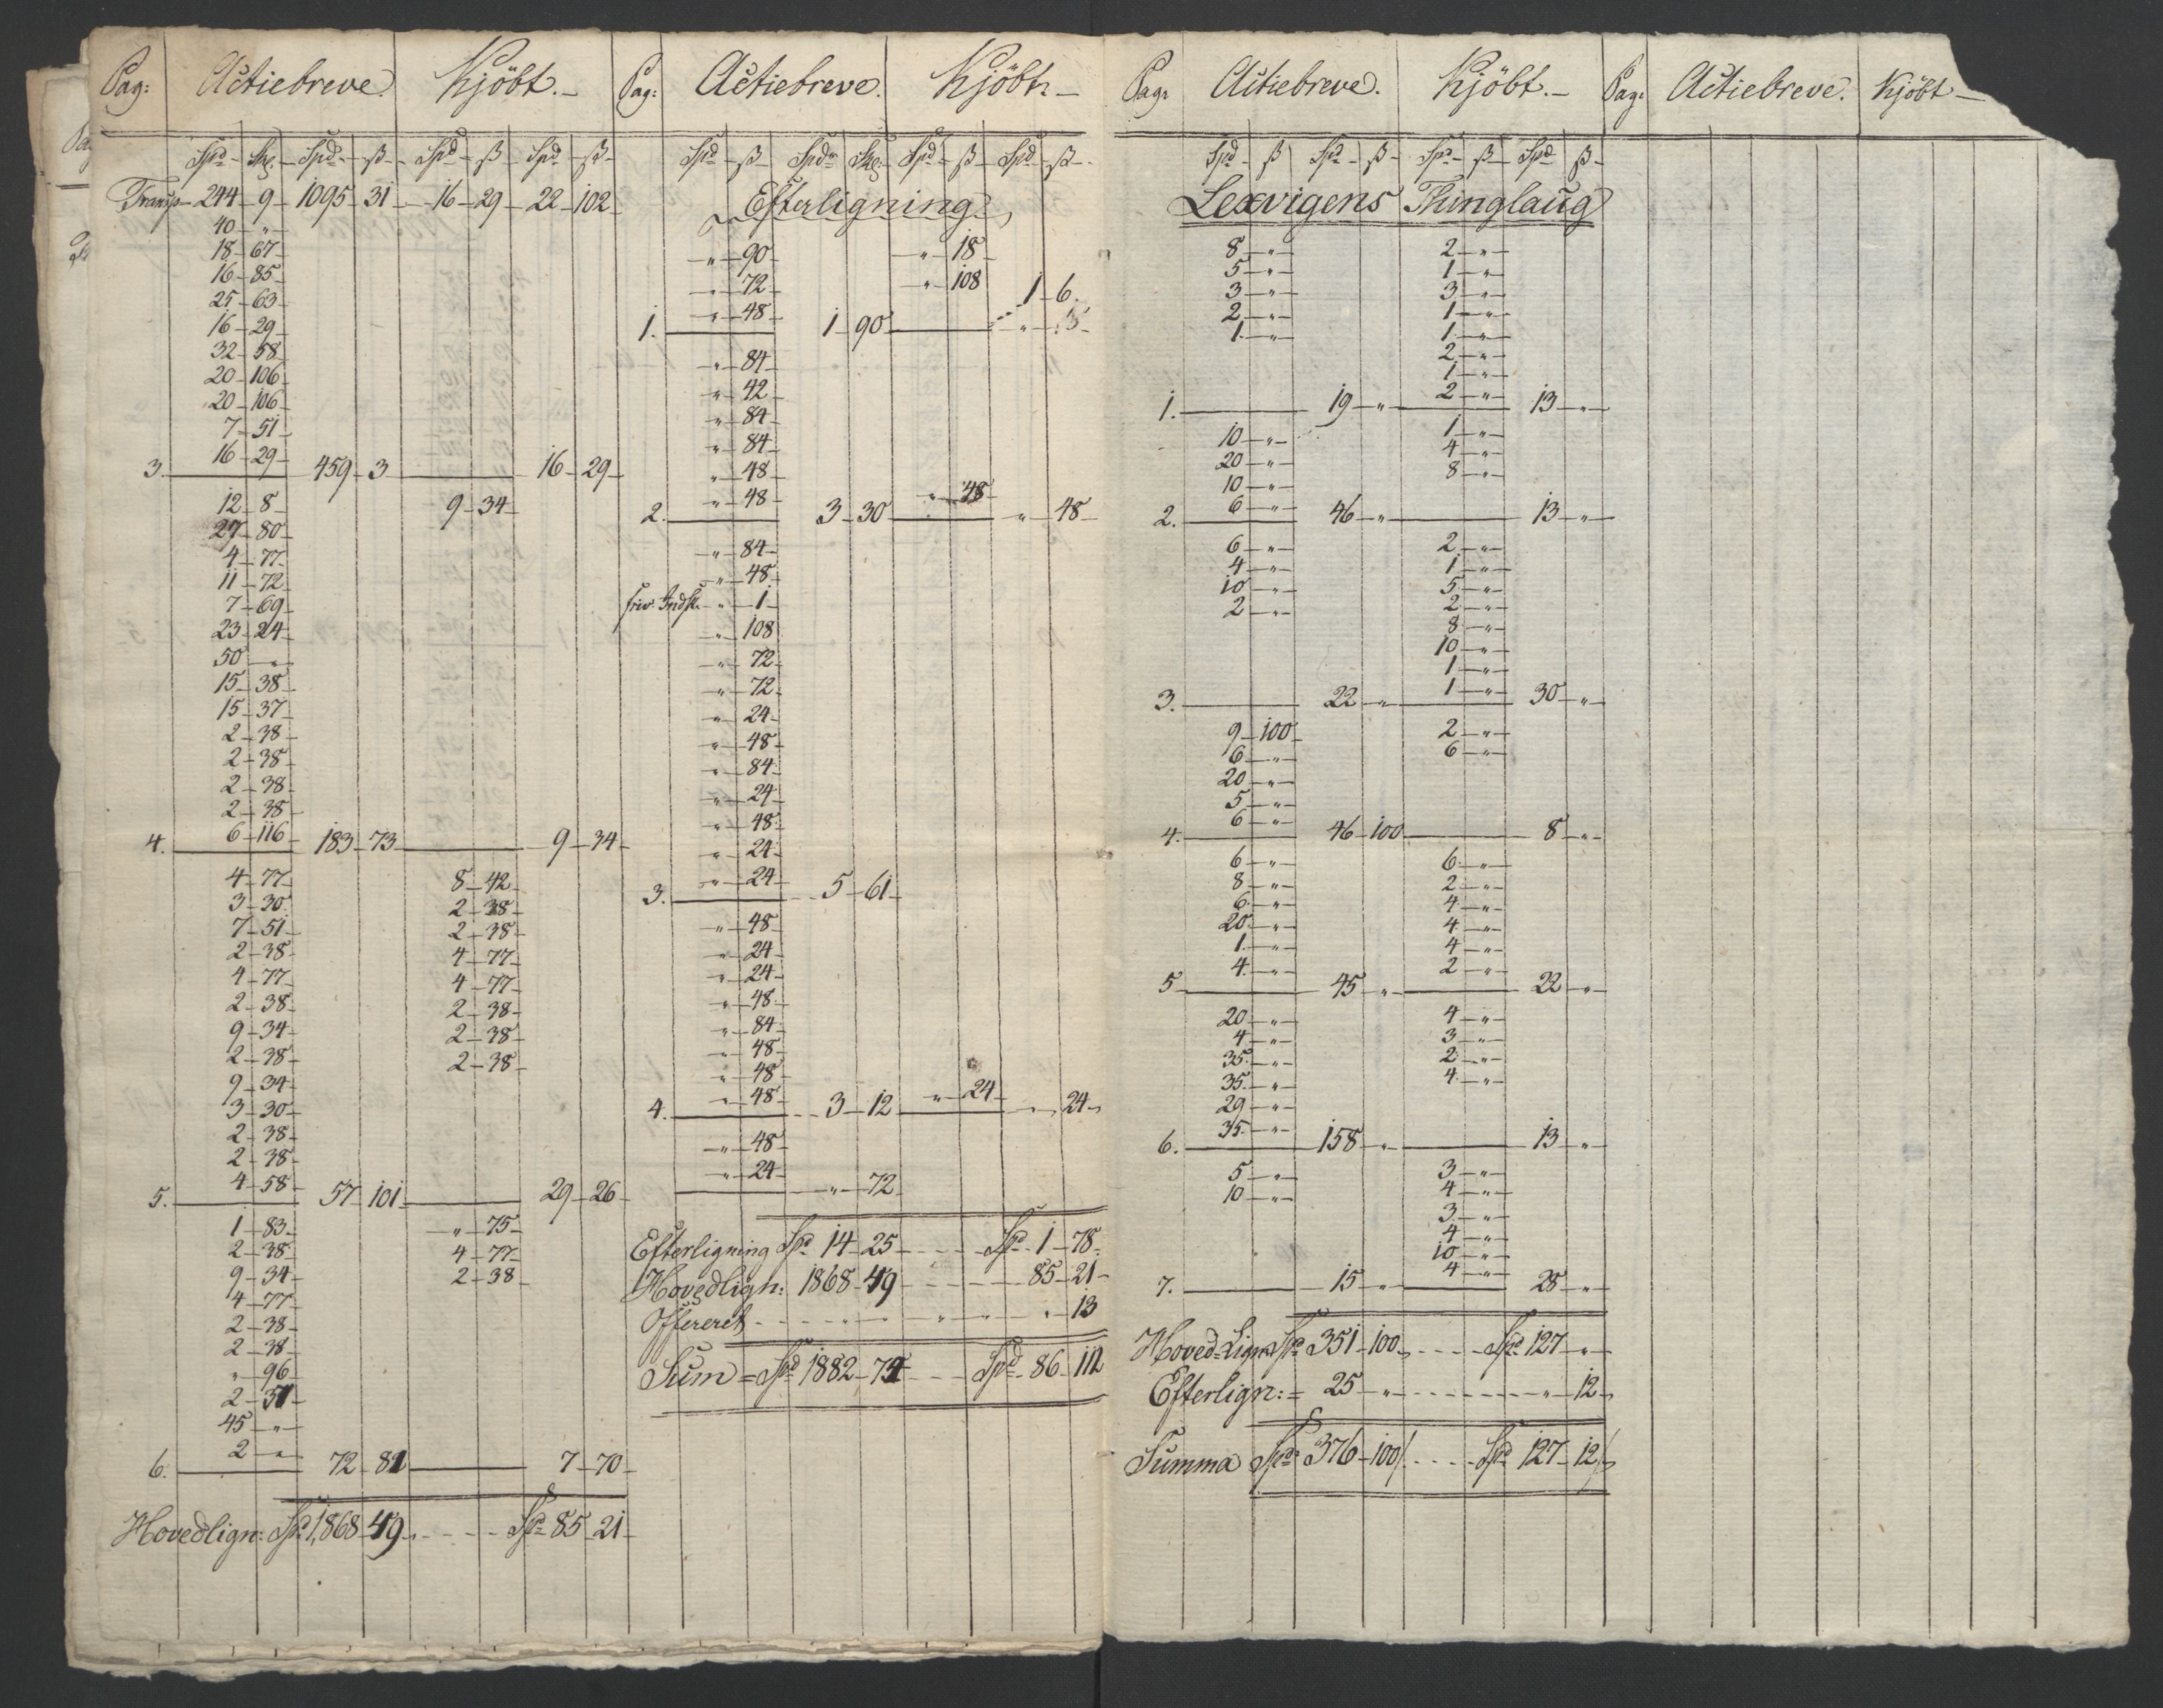 Pag: Actiebreve. Kjöbt.–
Spd – Skg. – Spd – ß – Spd – ß – Spd – ß –
Transp – 244 – 9 – 1095 – 31 – 16 – 29 – 22 – 102
40 – "
18 – 67
16 – 85
25 – 63
16 – 29
32 – 58
20 – 106
20 – 106
7 – 51
16 – 29
3. 459 – 3 16 – 29
12 – 8 9 – 34
27 – 80
4 – 77
11 – 72
7 – 69
23 – 24
50 – "
15 – 38
15 – 37
2 – 38
2 – 38
2 – 38
2 – 38
6 – 116
4. 183 – 73 9 – 34
4 – 77 8 – 42
3 – 30 2 – 38
7 – 51 2 – 38
2 – 38 4 – 77
4 – 77 4 – 77
2 – 38 2 – 38
9 – 34 2 – 38
2 – 38 2 – 38
9 – 34
3 – 30
2 – 38
2 – 38
4 – 58
5. 57 – 101 29 – 26
1 – 83 " – 75
2 – 38 4 – 77
9 – 34 2 – 38
4 – 77
2 – 38
2 – 38
" – 96
2 – 37
45 – "
2 – "
6. 72 – 81 7 – 70
Hovedlign: Spd 1868 – 49 – – – Spd 85 – 21
Pag: Actiebreve. Kjöbt –
Spd – ß – Spd – Skg. – Spd – ß – Spd – ß –
Efterligning
" – 90 " – 18
" – 72 " – 108 1 – 6
" – 48
1. 1 – 90
" – 84
" – 42
" – 84
" – 84
" – 48
" – 48 " – 48
2. 3 – 30 " – 48
" – 84
" – 48
friv. Indsk. " – 1
" – 108
" – 72
" – 72
" – 24
" – 48
" – 84
" – 24
" – 48
" – 24
" – 24
3. 5 – 61
" – 48
" – 24
" – 24
" – 48
" – 84
" – 48
" – 48
" – 48 " – 24
4. 3 – 12 " – 24
" – 48
" – 24
" – 72
Efterligning Spd 14 – 25 – – – Spd 1 – 78
Hovedlign: 1868 – 49 – – – 85 – 21
Offereret – – – " – 13
Sum = Spd 1882 – 74 – – – Spd 86 – 112
Pag: Actiebreve. Kjöbt.–
Spd – ß Spd – ß – Spd – ß – Spd ß –
Lexvigens Thinglaug
8 – " 2 – "
5 – " 1 – "
3 – " 3 – "
2 – " 1 – "
1 – " 1 – "
2 – "
1 – "
2 – "
1. 19 – " 13 – "
10 – " 1 – "
20 – " 4 – "
10 – " 8 – "
6 – "
2. 46 – " 13 – "
6 – " 2 – "
4 – " 1 – "
10 – " 5 – "
2 – " 2 – "
8 – "
10 – "
1 – "
1 – "
3. 22 – " 30 – "
9 – 100 2 – "
6 – " 6 – "
20 – "
5 – "
6 – "
4. 46 – 100 8 – "
6 – " 6 – "
8 – " 2 – "
6 – " 4 – "
20 – " 4 – "
1 – " 4 – "
4 – " 2 – "
5 45 – " 22 – "
20 – " 4 – "
4 – " 3 – "
35 – " 2 – "
35 – " 4 – "
29 – "
35 – "
6. 158 – " 13 – "
5 – " 3 – "
10 – " 4 – "
3 – "
4 – "
10 – "
4 – "
7. 15 – " 28 – "
Hoved-Lign: Spd 351 – 100 – – – Spd 127 – "
Efterlign: = 25 – " – – – " – 12
Summa Spd 376 – 100 – – – Spd 127 – 12
Pag: Actiebreve. Kjöbt –